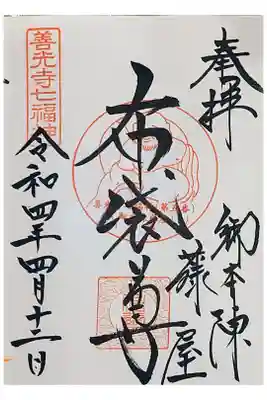 奉拝
御本陣
藤屋
布袋尊
善光寺七福神
令和四年四月十二日